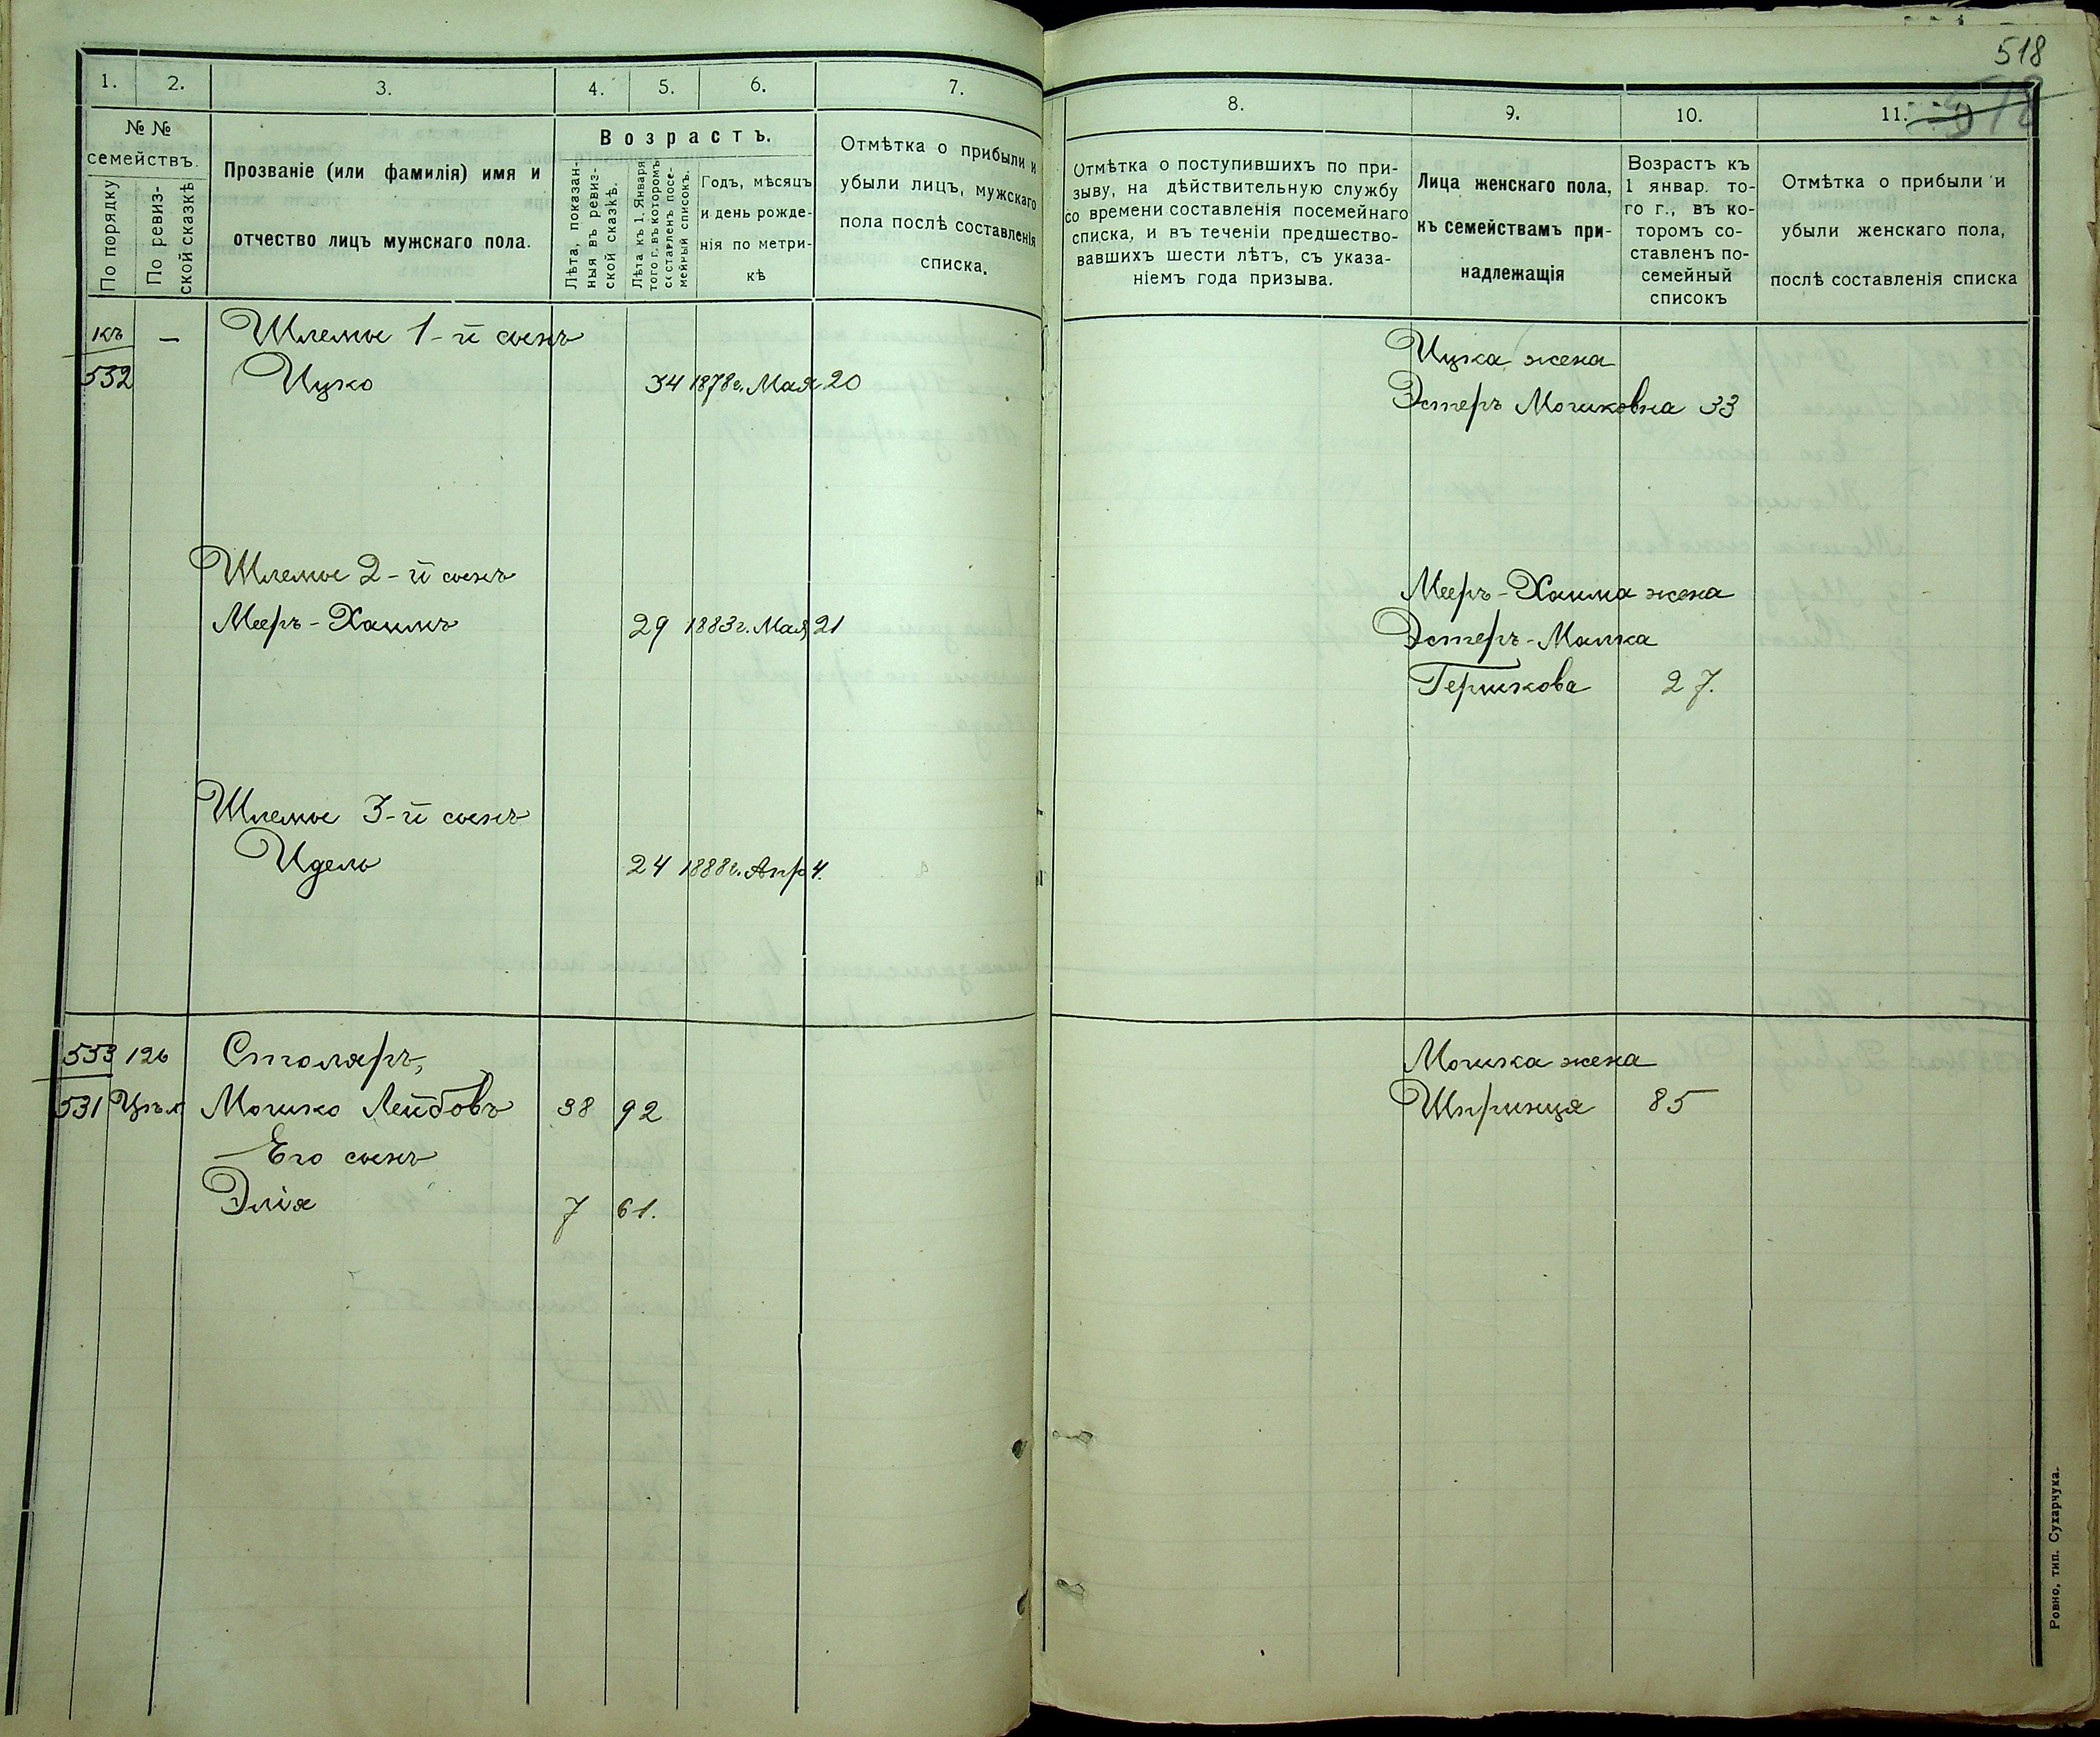 518
1. 2. 3. 4. 5. 6. 7.
№ №
семействъ.
По порядку
По ревиз-
ской сказкѣ
Прозваніе (или фамилія) имя и
отчество лицъ мужскаго пола.
Возрастъ.
Лѣта, показан-
ныя въ ревиз-
ской сказкѣ.
Лѣта къ 1 Января
того г. въ которомъ
составленъ посе-
мейный списокъ.
Годъ, мѣсяцъ
и день рожде-
нія по метри-
кѣ
Отмѣтка о прибыли и
убыли лицъ, мужскаго
пола послѣ составленія
списка.
къ — Шлемы 1-й сынъ
532 Ицко 34 1878 г. Мая 20
Шлемы 2-й сынъ
Мееръ-Хаимъ 29 1883 г. Мая 21
Шлемы 3-й сынъ
Идель 24 1888 г. Апр 4.
533 126 Столяръ,
531 Мошко Лейбовъ 38 92
Его сынъ
Элія 7 61.
8. 9. 10. 11.
518
Отмѣтка о поступившихъ по при-
зыву, на дѣйствительную службу
со времени составленія посемейнаго
списка, и въ теченіи предшество-
вавшихъ шести лѣтъ, съ указа-
ніемъ года призыва.
Лица женскаго пола,
къ семействамъ при-
надлежащія
Возрастъ къ
1 январ. то-
го г., въ ко-
торомъ со-
ставленъ по-
семейный
списокъ
Отмѣтка о прибыли и
убыли женскаго пола,
послѣ составленія списка
Ицка жена
Эстеръ Мошковна 33
Мееръ-Хаима жена
Эстеръ-Малка
Гершкова 27.
Мошка жена
Шпринца 85
Ровно, тип. Сухарчука.